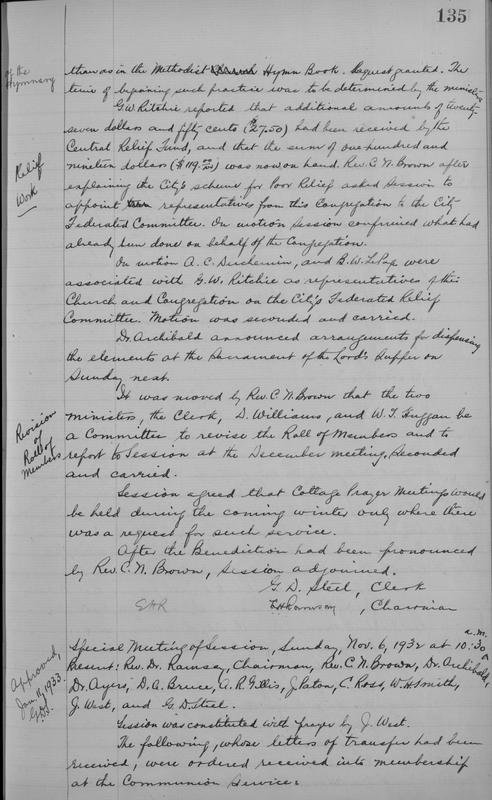 135
of the
Hymnary
than as in the Methodist Church Hymn Book. Request granted. The
time of beginning such practice was to be determined by the ministers.
G.W. Ritchie reported that additional amounts of twenty-
seven dollars and fifty cents ($27.50) had been received by the
Central Relief Fund, and that the sum of one hundred and
nineteen dollars ($119.00) was now on hand. Rev. C. N. Brown after
Relief
Work
explaining the City's scheme for Poor Relief asked Session to
appoint representatives from this Congregation to the City
Federated Committee. On motion Session confirmed what had
already been done on behalf of the Congregation.
On motion A. C. Duchemin, and B. W. LePage were
associated with G. W. Ritchie as representatives of this
Church and Congregation on the City's Federated Relief
Committee. Motion was seconded and carried.
Dr. Archibald announced arrangements for dispensing
the elements at the Sacrament of the Lord's Supper on
Sunday next.
It was moved by Rev. C. N. Brown that the two
ministers, the Clerk, D. Williams, and W. T. Huggan be
Revision
of
Roll of
Members
a Committee to revise the Roll of Members and to
report to Session at the December meeting. Seconded
and carried.
Session agreed that Cottage Prayer Meetings would
be held during the coming winter only where there
was a request for such service.
After the Benediction had been pronounced
by Rev. C. N. Brown, Session adjourned.
G. D. Steel, Clerk
EHR
E H Ramsay, Chairman
Approved,
Jan. 11, 1933.
G.D.S.
Special Meeting of Session, Sunday, Nov. 6, 1932 at 10:30 a.m.
Present: Rev. Dr. Ramsay, Chairman, Rev. C. N. Brown, Dr. Archibald,
Dr. Ayers, D. A. Bruce, A. R. Gillis, J. Paton, C. Ross, W. H. Smith,
J. West, and G. D. Steel.
Session was constituted with prayer by J. West.
The following, whose letters of transfer had been
received, were ordered received into membership
at the Communion Service: